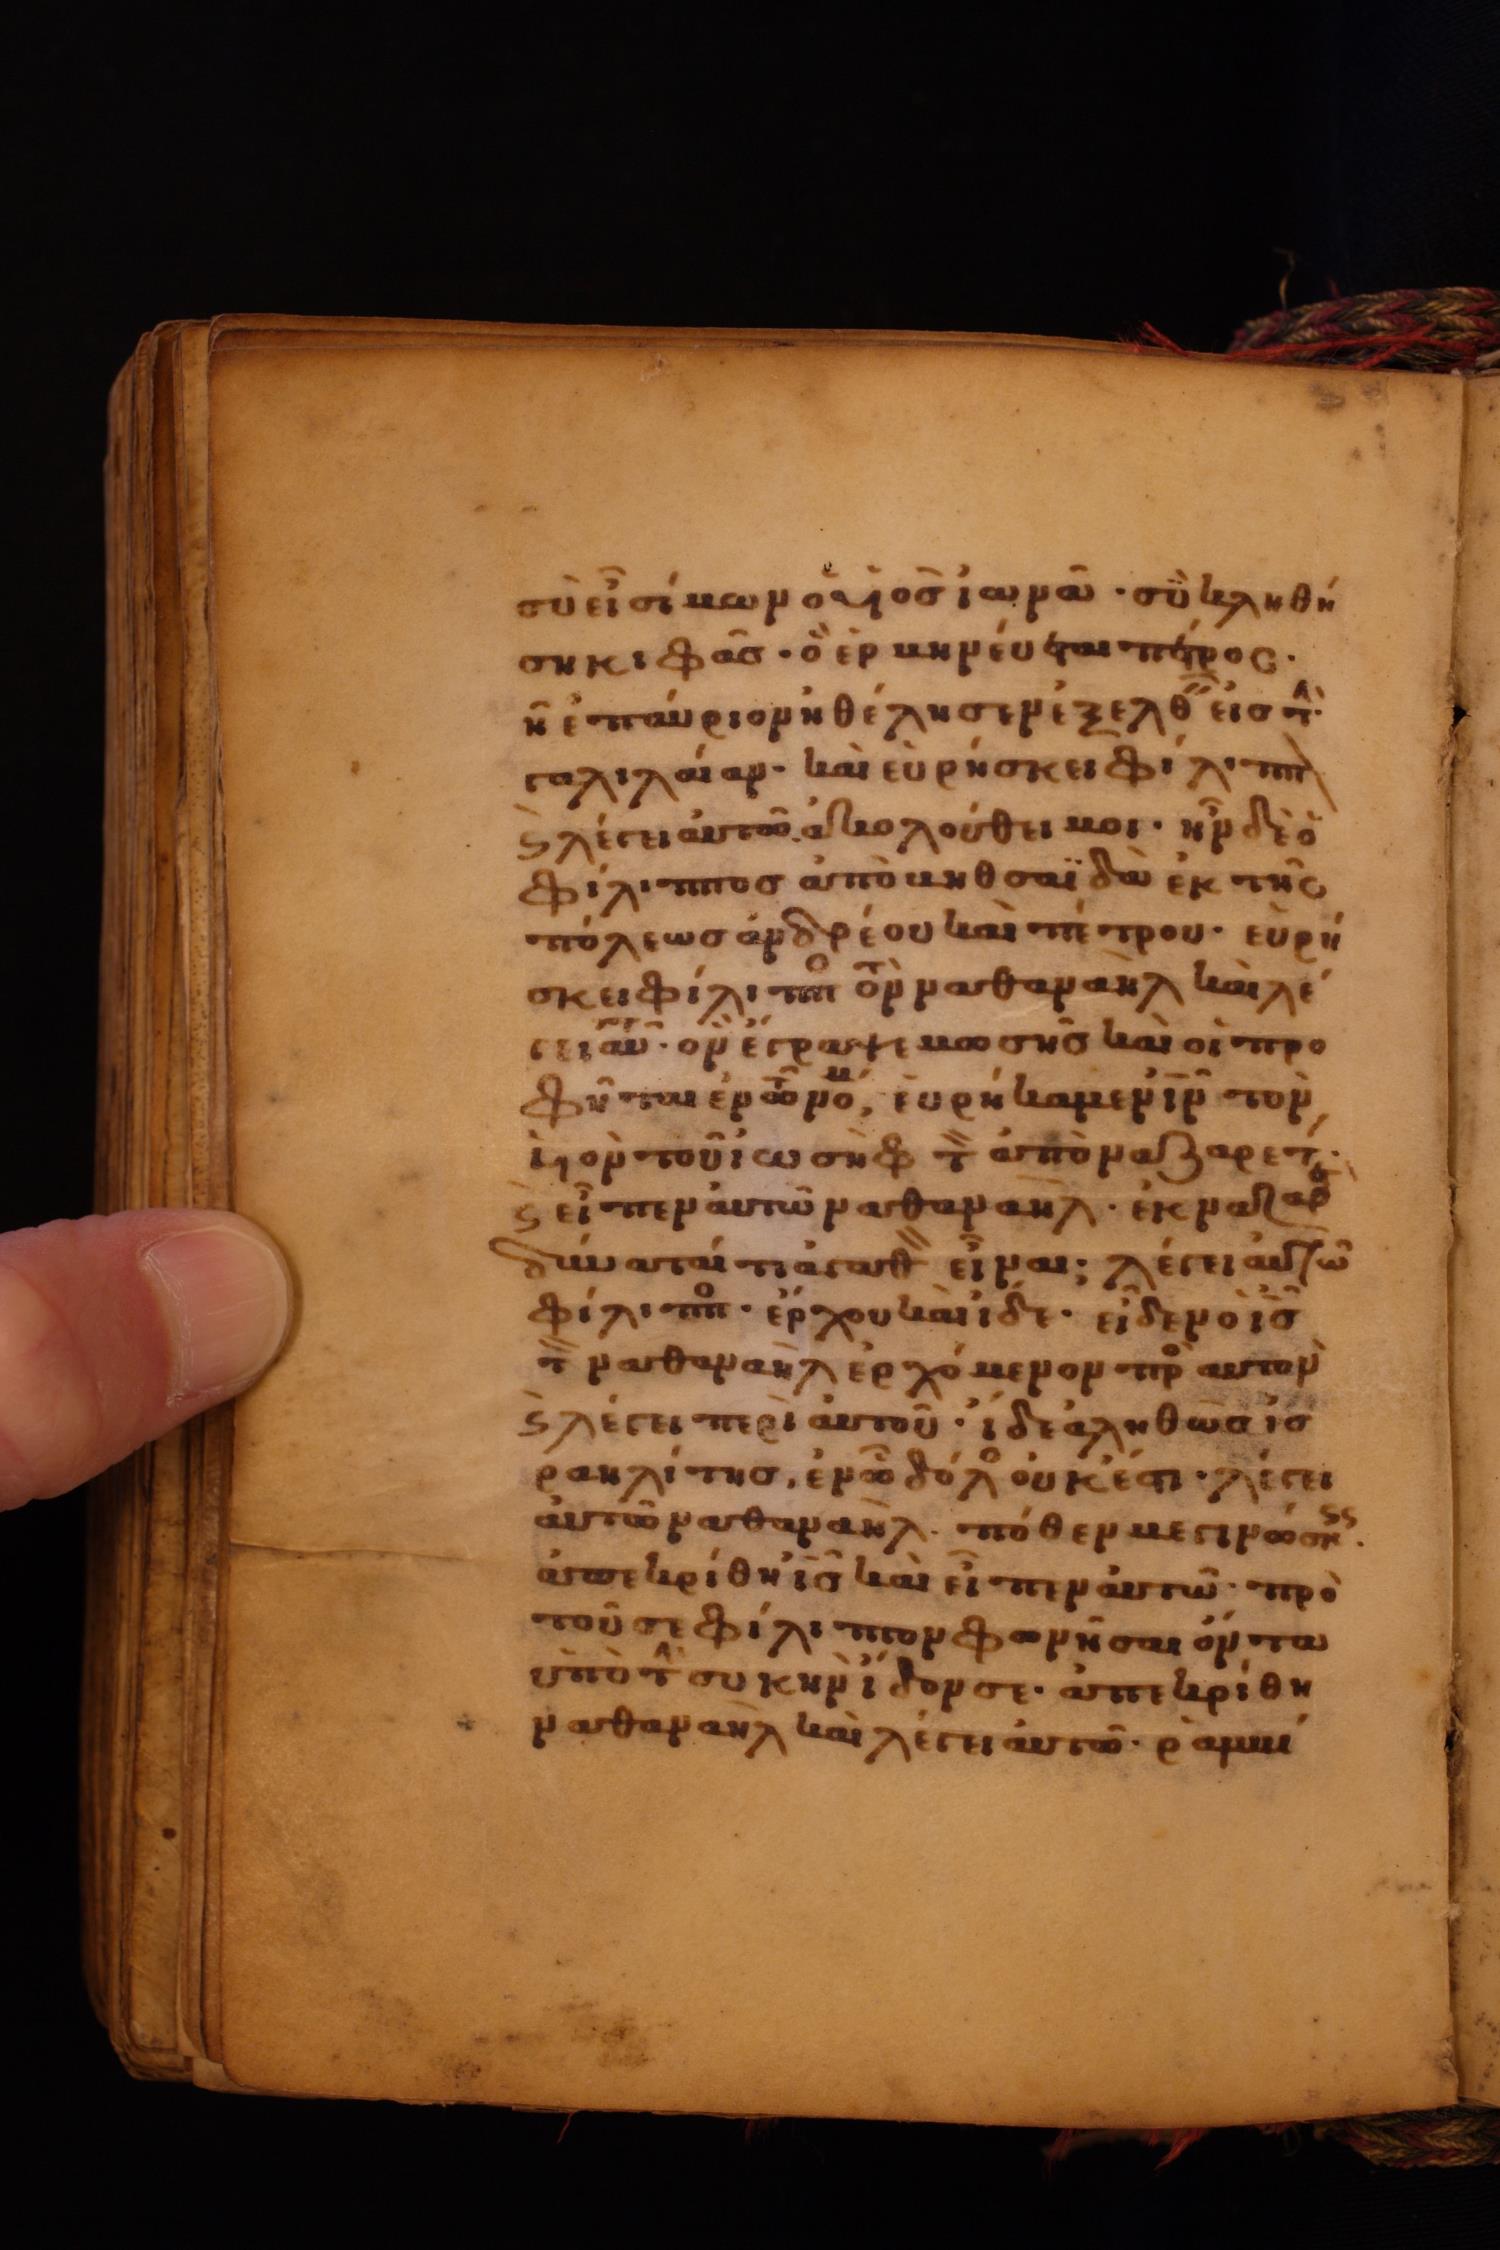 σὺ εἶ σίμων ὁ ὑιὸσ ἰωνᾶ · σὺ κληθή
ση κιφᾶσ · ὃ ἑρμηνέυεται πέτρος ·
τῆ ἐπάυριον ἠθέλησεν ἐξελθεῖν εἰσ τὴν
γαλιλάιαν · καὶ ἑυρήσκει φίλιππ
ϛ λέγει ἀυτῶ ἀκολούθει μοι · ἦν δὲ ὁ
φίλιπποσ ἀπὸ μηθσαϊδὰ ἐκ τῆς
πόλεωσ ἀνδρέου καὶ πέτρου · εὑρή
σκει φίλιππο τὸν ναθαναὴλ καὶ λέ
γει αὐτῶ · ὃν ἔγραψε μωσῆσ καὶ οἱ προ
φῆται ἐν τῶ νόμ, ἑυρήκαμεν ἰῦν τὸν
ὑιὸν τοῦ ἰωσὴφ τὸν ἀπὸ ναζαρέτ ·
ϛ εἶπεν ἀυτῶ ναθαναὴλ · ἐκ ναζαρὲτ
δύναταί τι ἀγαθὸν εἶναι; λέγει ἀυτῶ
φίλιππο · ἔρχου καὶ ἴδε · εἶδεν ὁ ἰσ
τὸν ναθαναὴλ ἐρχόμενον πρὸ αυτον
ϛ λέγει περὶ ἀυτοῦ · ἴδε ἀληθῶσ ἰσ
ραηλίτησ, ἐν ῶ δόλο ὀυκ ἔστι · λέγει
ἀυτῶ ναθαναὴλ · πόθεν με γινώσκεισ ·
ἀπεκρίθη ἰσ καὶ εἶπεν ἀυτῶ · πρὸ
τοῦ σε φίλιππον φωνῆσαι ὄντα
ὑπὸ τὴν συκὴν ἴδον σε · ἀπεκρίθη
ναθαναὴλ καὶ λέγει ἀυτῶ · ῥαμμί